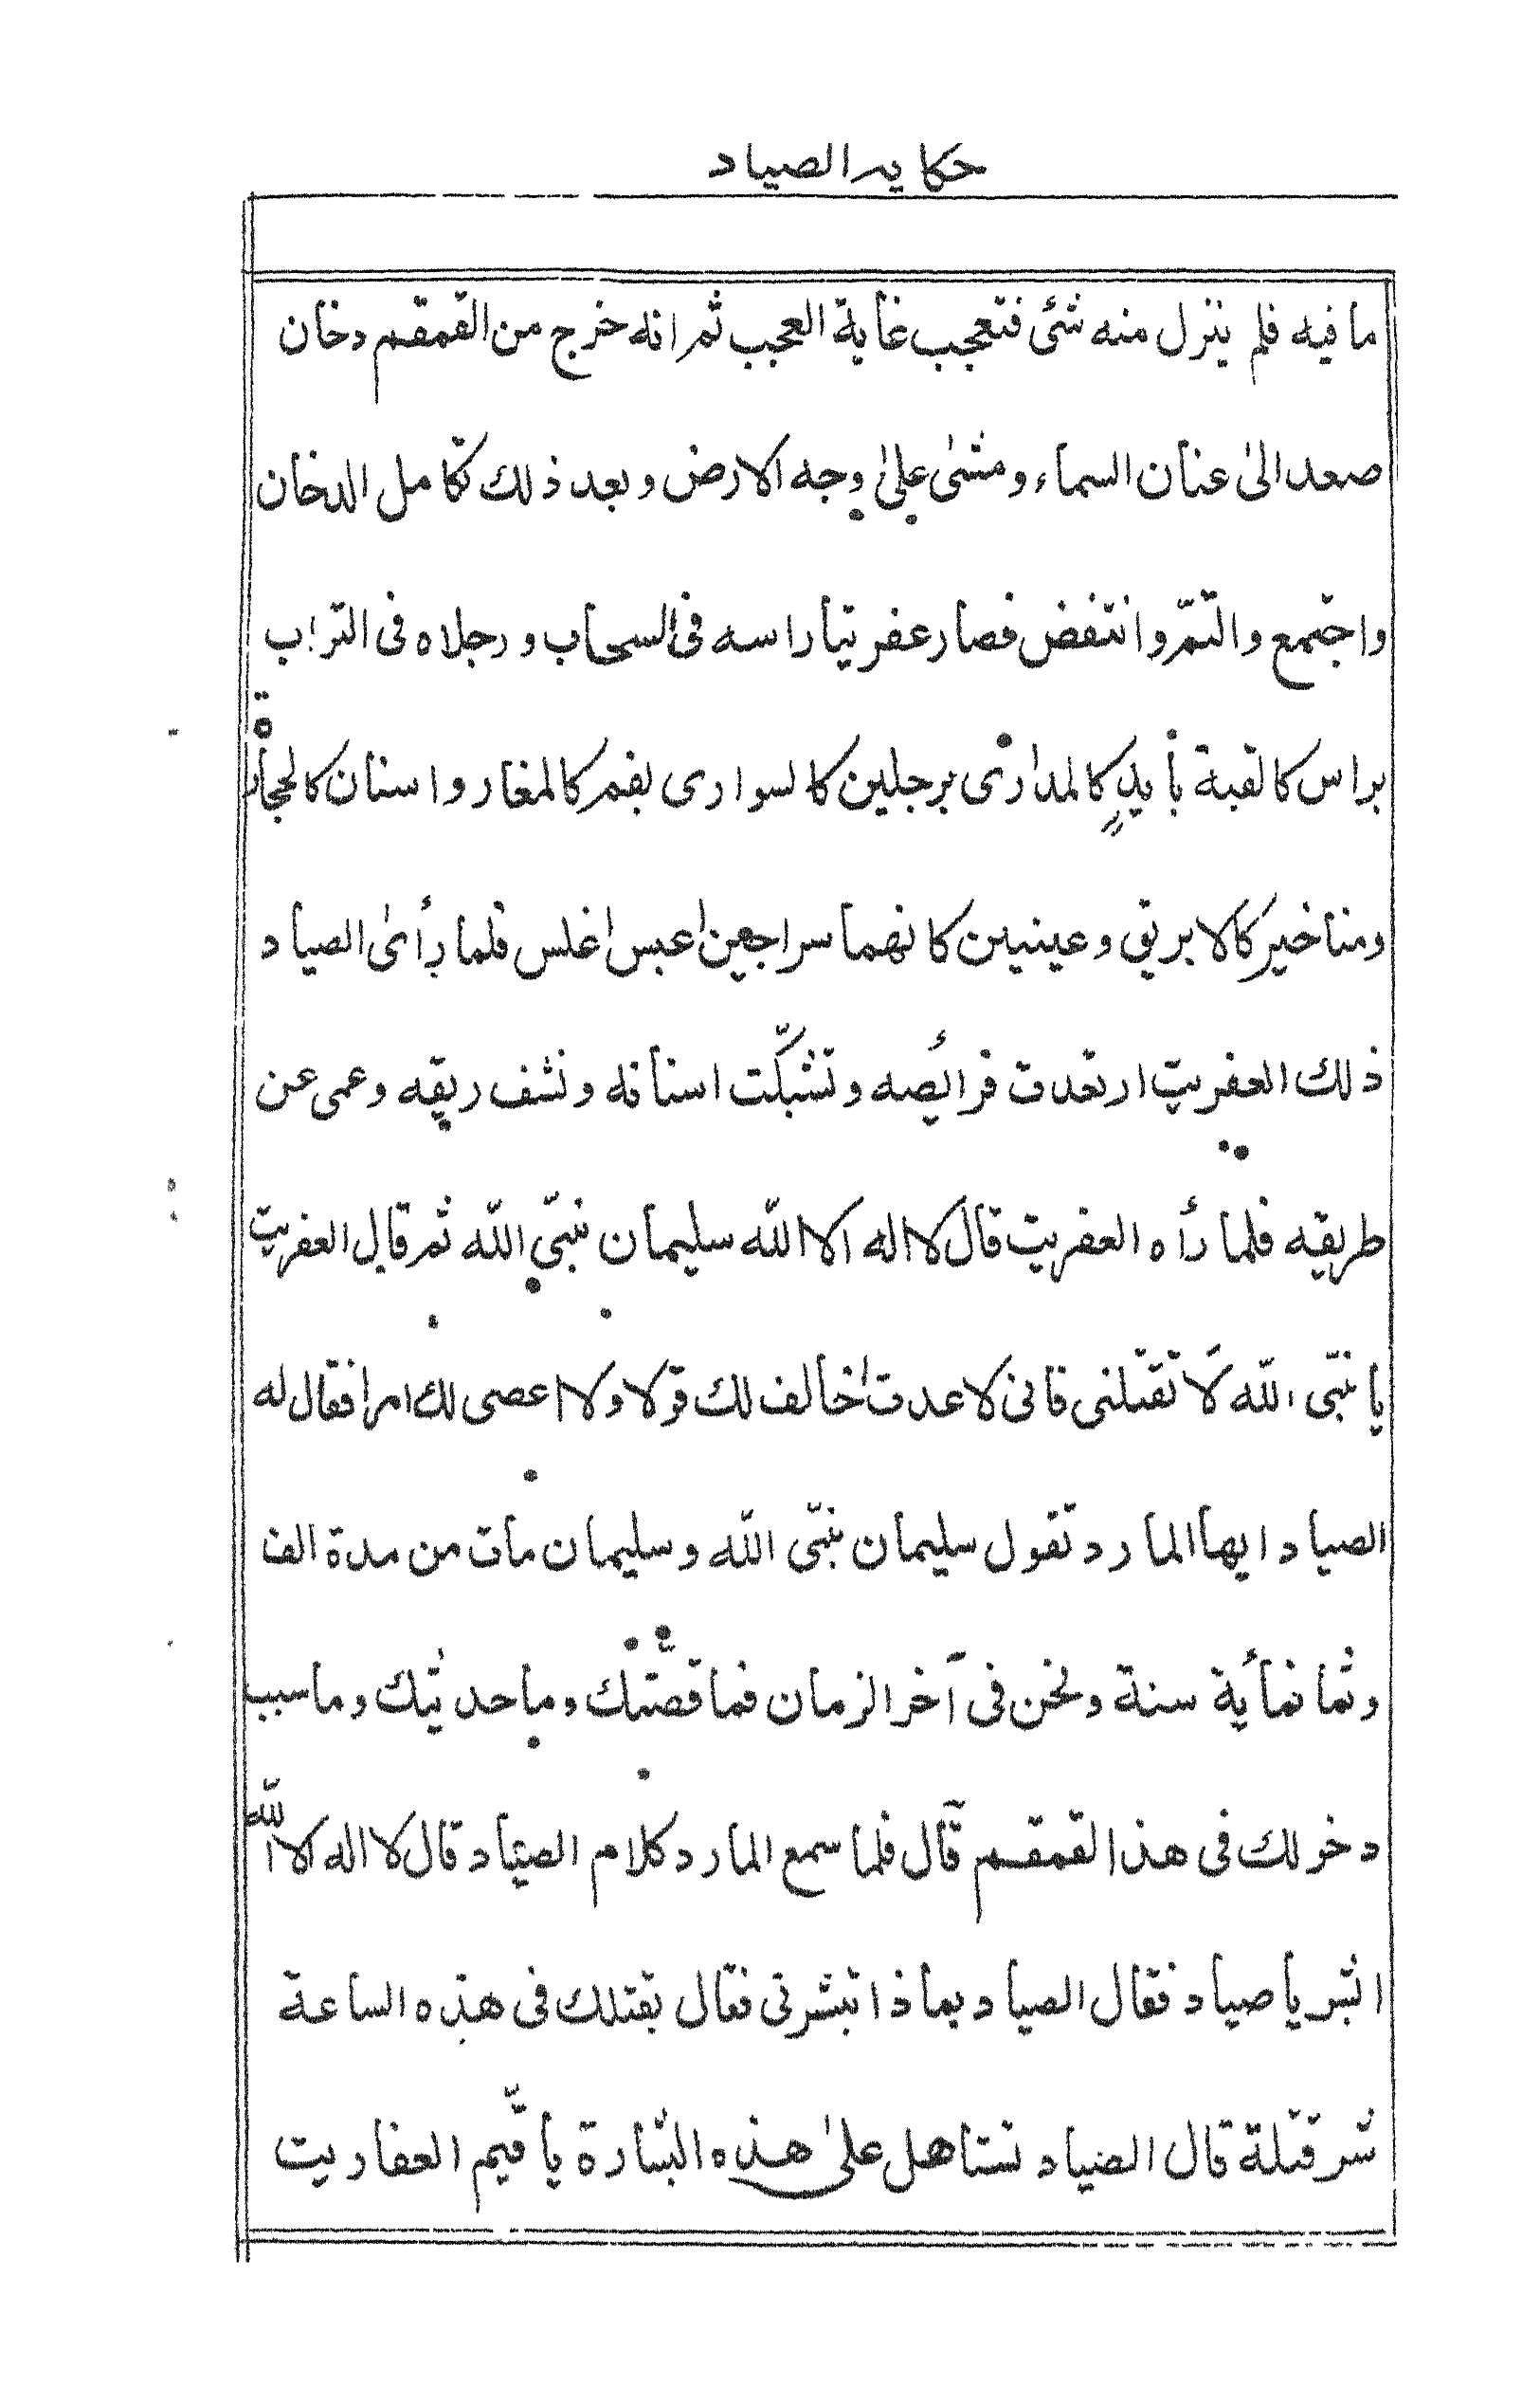 حكايه الصياد
ما فيه فلم ينزل منه شئى فتعجب غاية العجب ثم انه خرج من القمقم دخان
صعد الىٰ عنان السماء ومشىٰ علىٰ وجه الارض وبعد ذلك تكامل الدخان
واجتمع والتمّ وانتفض فصار عفريتا راسه فى السحاب ورجلاه فى التراب
براس كالقبة بأيدٍ كالمدارى برجلين كالسوارى بفم كالمغار واسنان كالحجارة
ومناخير كالابريق وعينين كانهما سراجين اعبس اغلس فلما رأىٰ الصياد
ذلك العفريت ارتعدت فرائصه وتشبكّت اسنانه ونشف ريقه وعمى عن
طريقه فلما رأه العفريت قال لا اله الا اللّه سليمان نبىّ اللّه ثم قال العفريت
يا نبىّ اللّه لَا تقتلنى فانى لا عدت اخالف لك قولا ولا اعصى لك امرا فقال له
الصياد ايها المارد تقول سليمان نبىّ اللّه وسليمان مات من مدة الف
وثمانمأية سنة ونحن فى آخر الزمان فما قصّتك وما حديثك وما سبب
دخولك فى هذا القمقم قال فلما سمع المارد كلام الصيّاد قال لا اله الا اللّه
ابشر يا صياد فقال الصياد بماذا تبشرنى فقال بقتلك فى هذه الساعة
شر قتلة قال الصياد تستاهل علىٰ هذه البشارة يا قيّم العفاريت